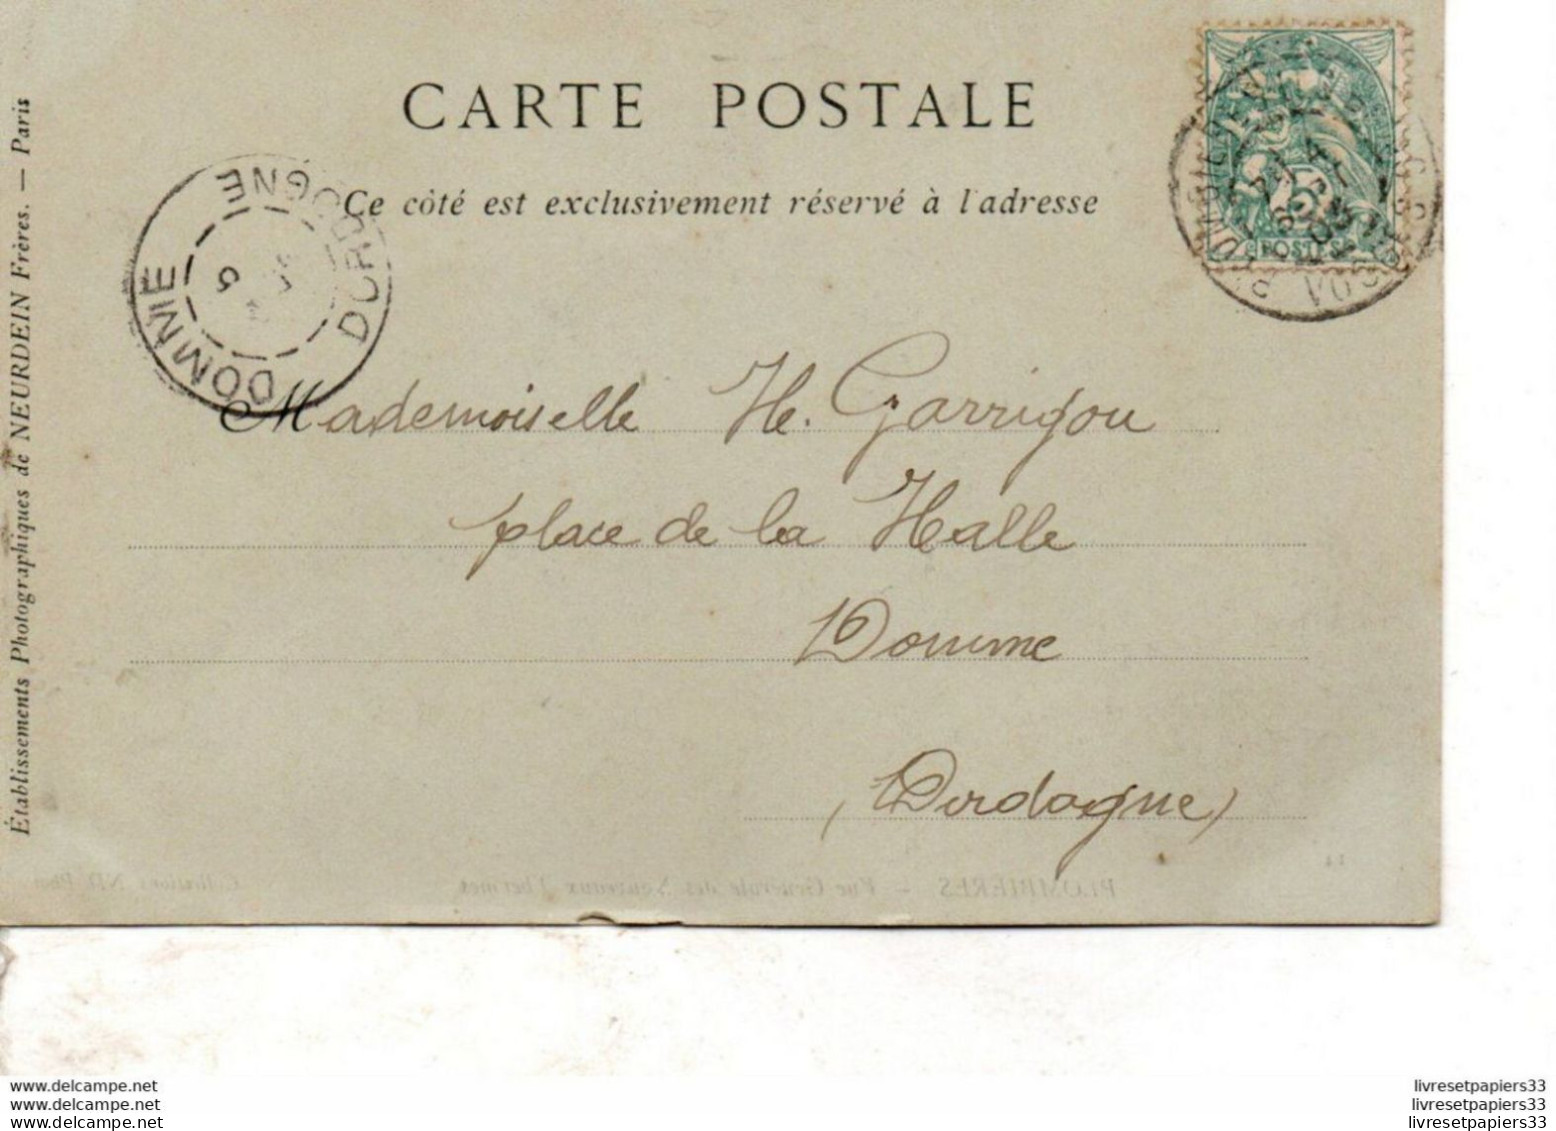 CARTE POSTALE
Ce côté est exclusivement réservé à l'adresse
Établissements Photographiques de NEURDEIN Frères. — Paris
DOMME DORDOGNE
5
POSTES
Mademoiselle H. Garrigou
place de la Halle
Domme
(Dordogne)
PLOMBIÈRES — Vue Générale des Nouveaux Thermes
www.delcampe.net
www.delcampe.net
www.delcampe.net
livresetpapiers33
livresetpapiers33
livresetpapiers33